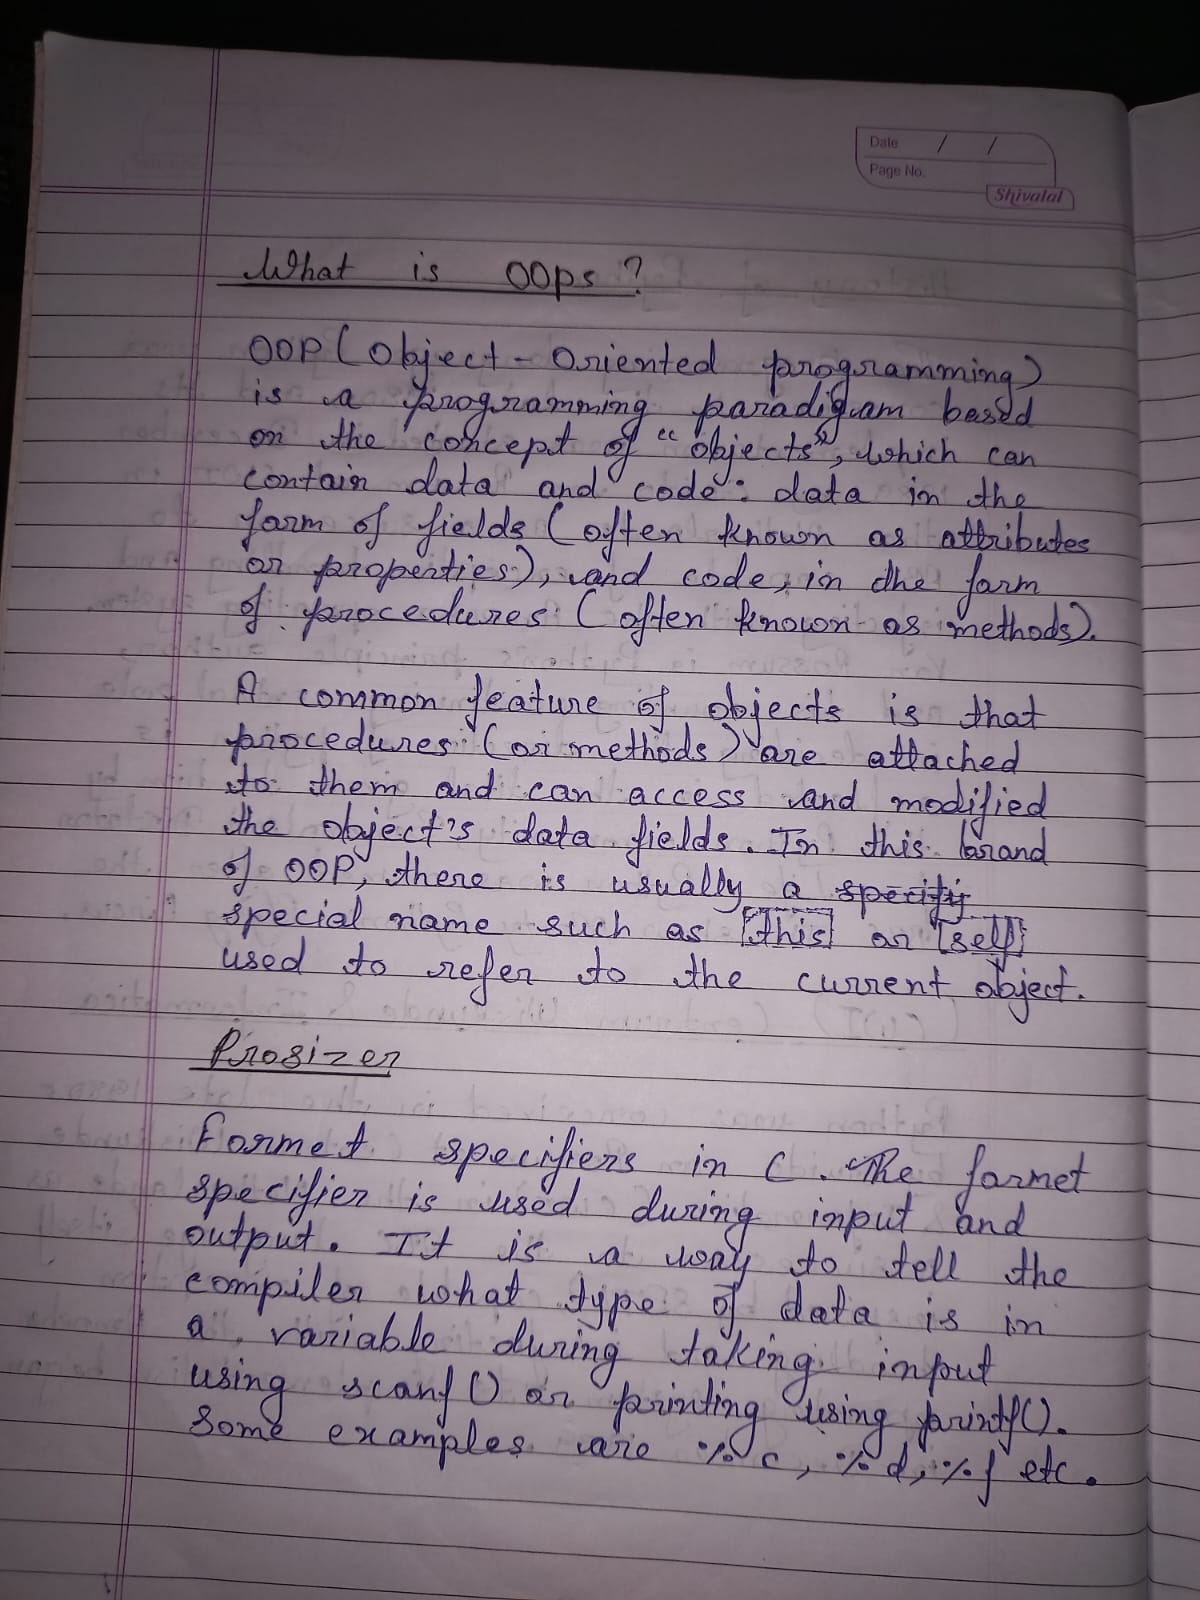 Date / /
Page No.
Shivalal
What is OOPs?
OOP (Object-Oriented programming)
is a programming paradigram based
on the concept of "objects", which can
contain data and code: data in the
form of fields (often known as attributes
or properties), and code, in dhe form
of procedures (often known as methods).
A common feature of objects is that
procedures (or methods) are attached
to them and can access and modified
the object's data fields. In this brand
of OOP, there is usually a specify
special name such as [this] or [self]
used to refer to the current object.
Prosizer
Formet specifiers in C. The formet
specifier is used during input and
output. It is a way to tell the
compiler what type of data is in
a variable during taking input
using scanf() or printing using printf().
Some examples are %c, %d, %f etc.